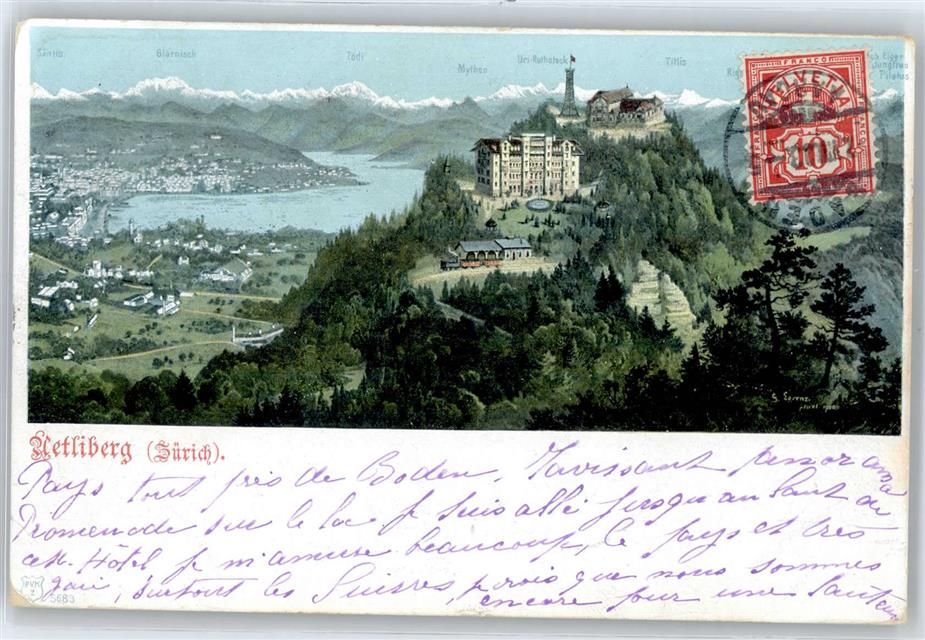 Säntis. Glärnisch Tödi Mythen Uri-Rothstock Titlis Rigi Eiger
Jungfrau
Pilatus
FRANCO
HELVETIA
10
Uetliberg (Zürich).
Pays tout près de Baden, Ravissant panorama
Promenade sur le lac je suis allé jusqu'au haut de
cet Hôtel je m'amuse beaucoup, le pays est très
gai, surtout les Suisses, je crois que nous sommes
encore pour une
PVK
Z
5683